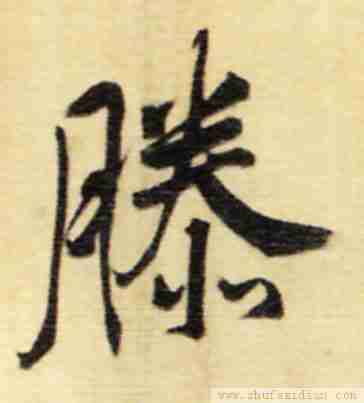 滕
www.shufazidian.com